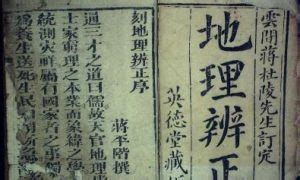 雲間蔣杜陵先生訂定
地理辨正
英德堂藏
刻地理辨正序
蔣平階撰
通三才之道曰儒故天官地理
士家窮理之本業而象緯之
統測災祥屬有國家者之事獨
為養生送死生民日用所